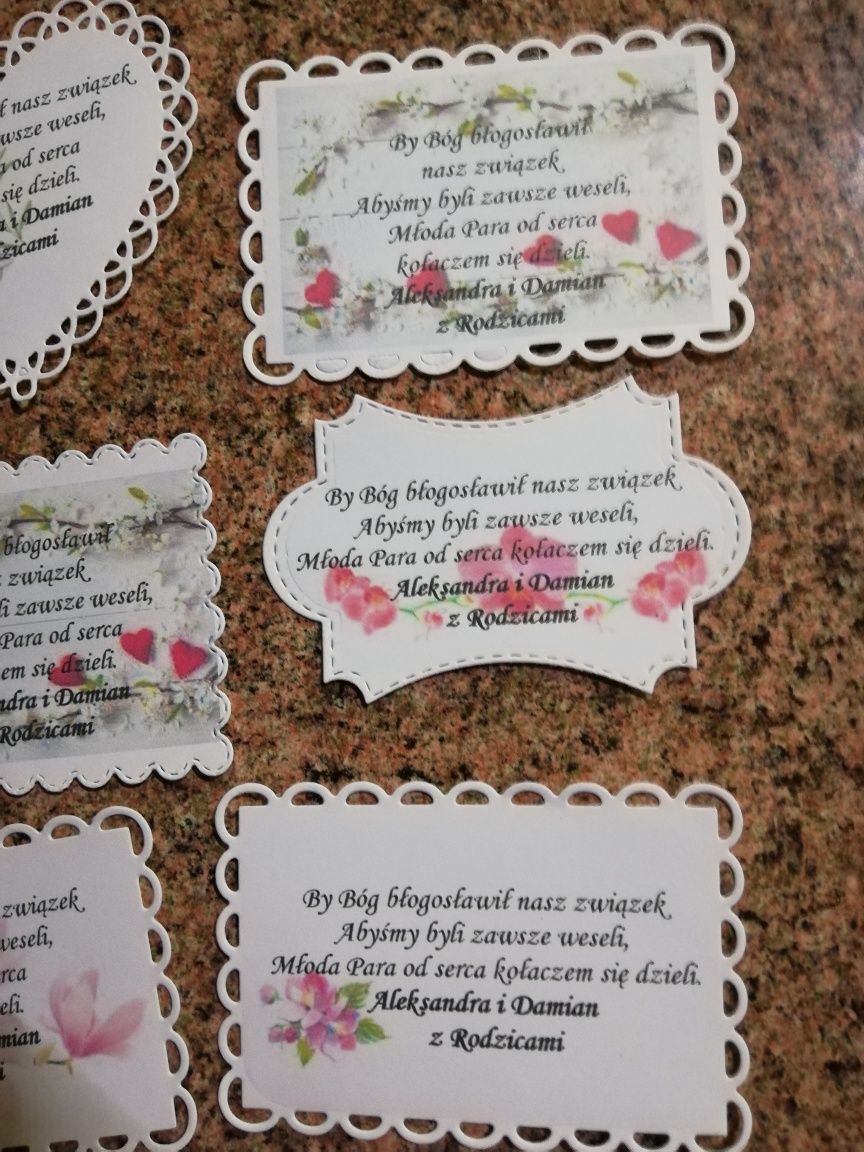 ł nasz związek
wsze weseli,
od serca
się dzieli.
i Damian
zicami
By Bóg błogosławił
nasz związek
Abyśmy byli zawsze weseli,
Młoda Para od serca
kołaczem się dzieli.
Aleksandra i Damian
z Rodzicami
By Bóg błogosławił nasz związek
Abyśmy byli zawsze weseli,
Młoda Para od serca kołaczem się dzieli.
Aleksandra i Damian
z Rodzicami
błogosławił
związek
li zawsze weseli,
Para od serca
em się dzieli.
ndra i Damian
Rodzicami
By Bóg błogosławił nasz związek
Abyśmy byli zawsze weseli,
Młoda Para od serca kołaczem się dzieli.
Aleksandra i Damian
z Rodzicami
związek
weseli,
rca
eli.
mian
i